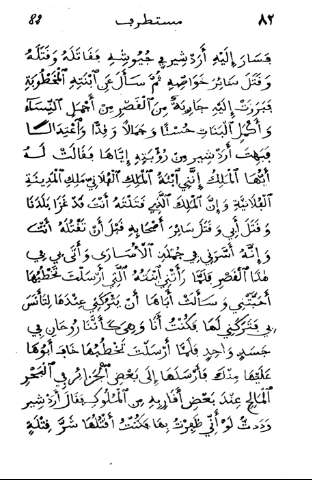 ٨٢ مستطرف 82
فسار إليه أردشير في جيوشه فقاتله وقتله
وقتل سائر خواصه ثم سأل عن ابنته المخطوبة
فبرزت إليه جارية من القصر من أجمل النساء
وأكمل البنات حسنا وجمالا وقدا واعتدالا
فبهت أردشير من رؤيته إياها فقالت له
أيها الملك إنني ابنة الملك الفلاني ملك المدينة
الفلانية وإن الملك الذي قتلته أنت قد غزا بلدنا
وقتل أبي وقتل سائر أصحابه قبل أن تقتله أنت
وإنه أسرني في جملة الأسارى وأتى بي في
هذا القصر فلما رأتني ابنته التي أرسلت تخطبها
أحبتني وسألت أباها أن يتركني عندها لتأنس
بي فتركني لها فكنت أنا وهي كأننا روحان في
جسد واحد فلما أرسلت تخطبها خاف أبوها
عليها منك فأرسلها إلى بعض الجزائر في البحر
المالح عند بعض أقاربه من الملوك فقال أردشير
وددت لو أني ظفرت بها فكنت أقتلها شر قتلة